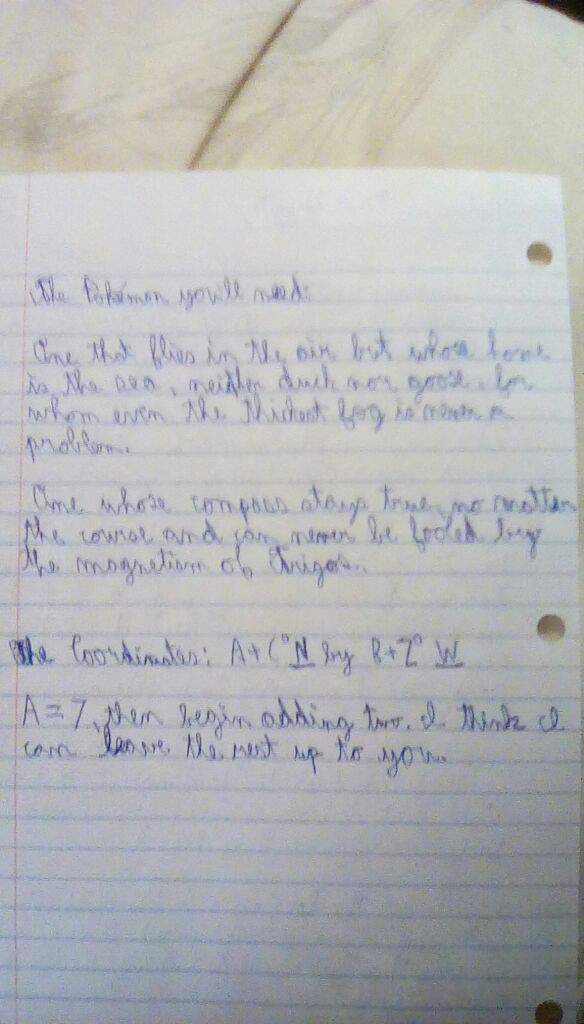 The Pokémon you'll need:
One that flies in the air but whose home
is the sea, neither duck nor goose, for
whom even the thickest fog is never a
problem.
One whose compass stays true, no matter
the course and can never be fooled by
the magnetism of
The Coordinates: A+C°N by B+Z° W
A=7, then begin adding two. I think I
can leave the rest up to you.